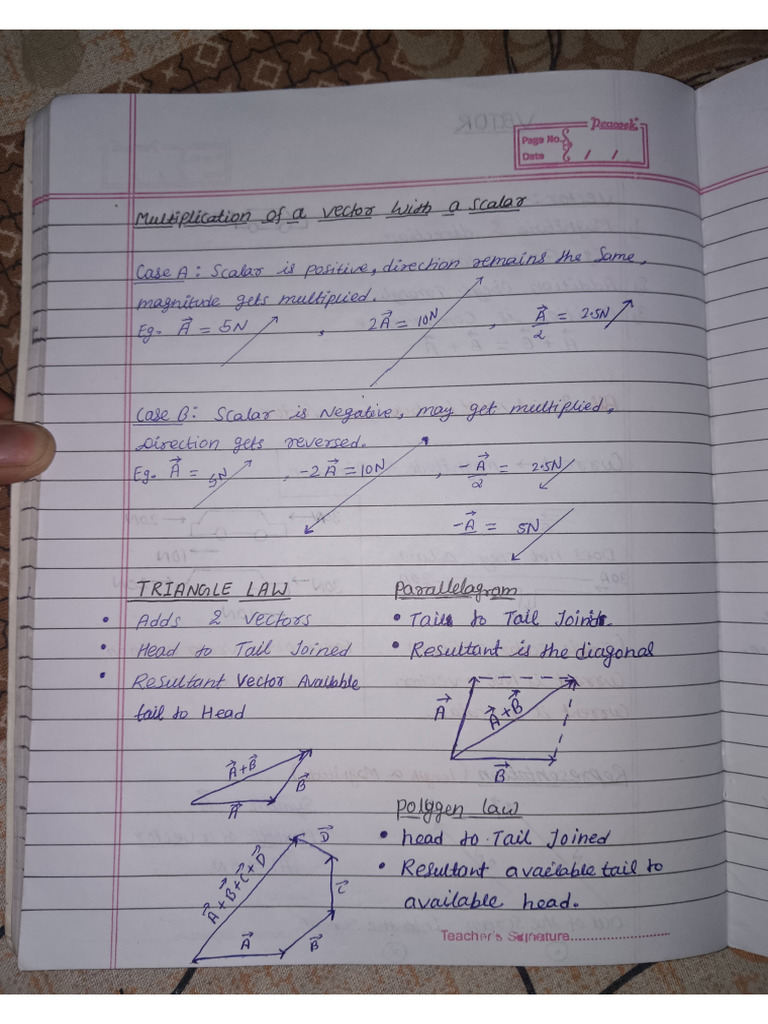 Peacock
Page No.
Date / /
Multiplication of a vector with a scalar
Case A: Scalar is positive, direction remains the same,
magnitude gets multiplied.
Eg. A⃗ = 5N , 2A⃗ = 10N , A⃗/2 = 2.5N
Case B: Scalar is Negative, may get multiplied,
Direction gets reversed.
Eg. A⃗ = 5N , -2A⃗ = 10N , -A⃗/2 = 2.5N
-A⃗ = 5N
TRIANGLE LAW
• Adds 2 vectors
• Head to Tail Joined
• Resultant Vector Available
tail to Head
A⃗+B⃗
B⃗
A⃗
Parallelagram
• Tails to Tail Joints.
• Resultant is the diagonal
A⃗
A⃗+B⃗
B⃗
Polygen law
• head to Tail Joined
• Resultant available tail to
available head.
D⃗
A⃗+B⃗+C⃗+D⃗
C⃗
A⃗
B⃗
Teacher's Signature